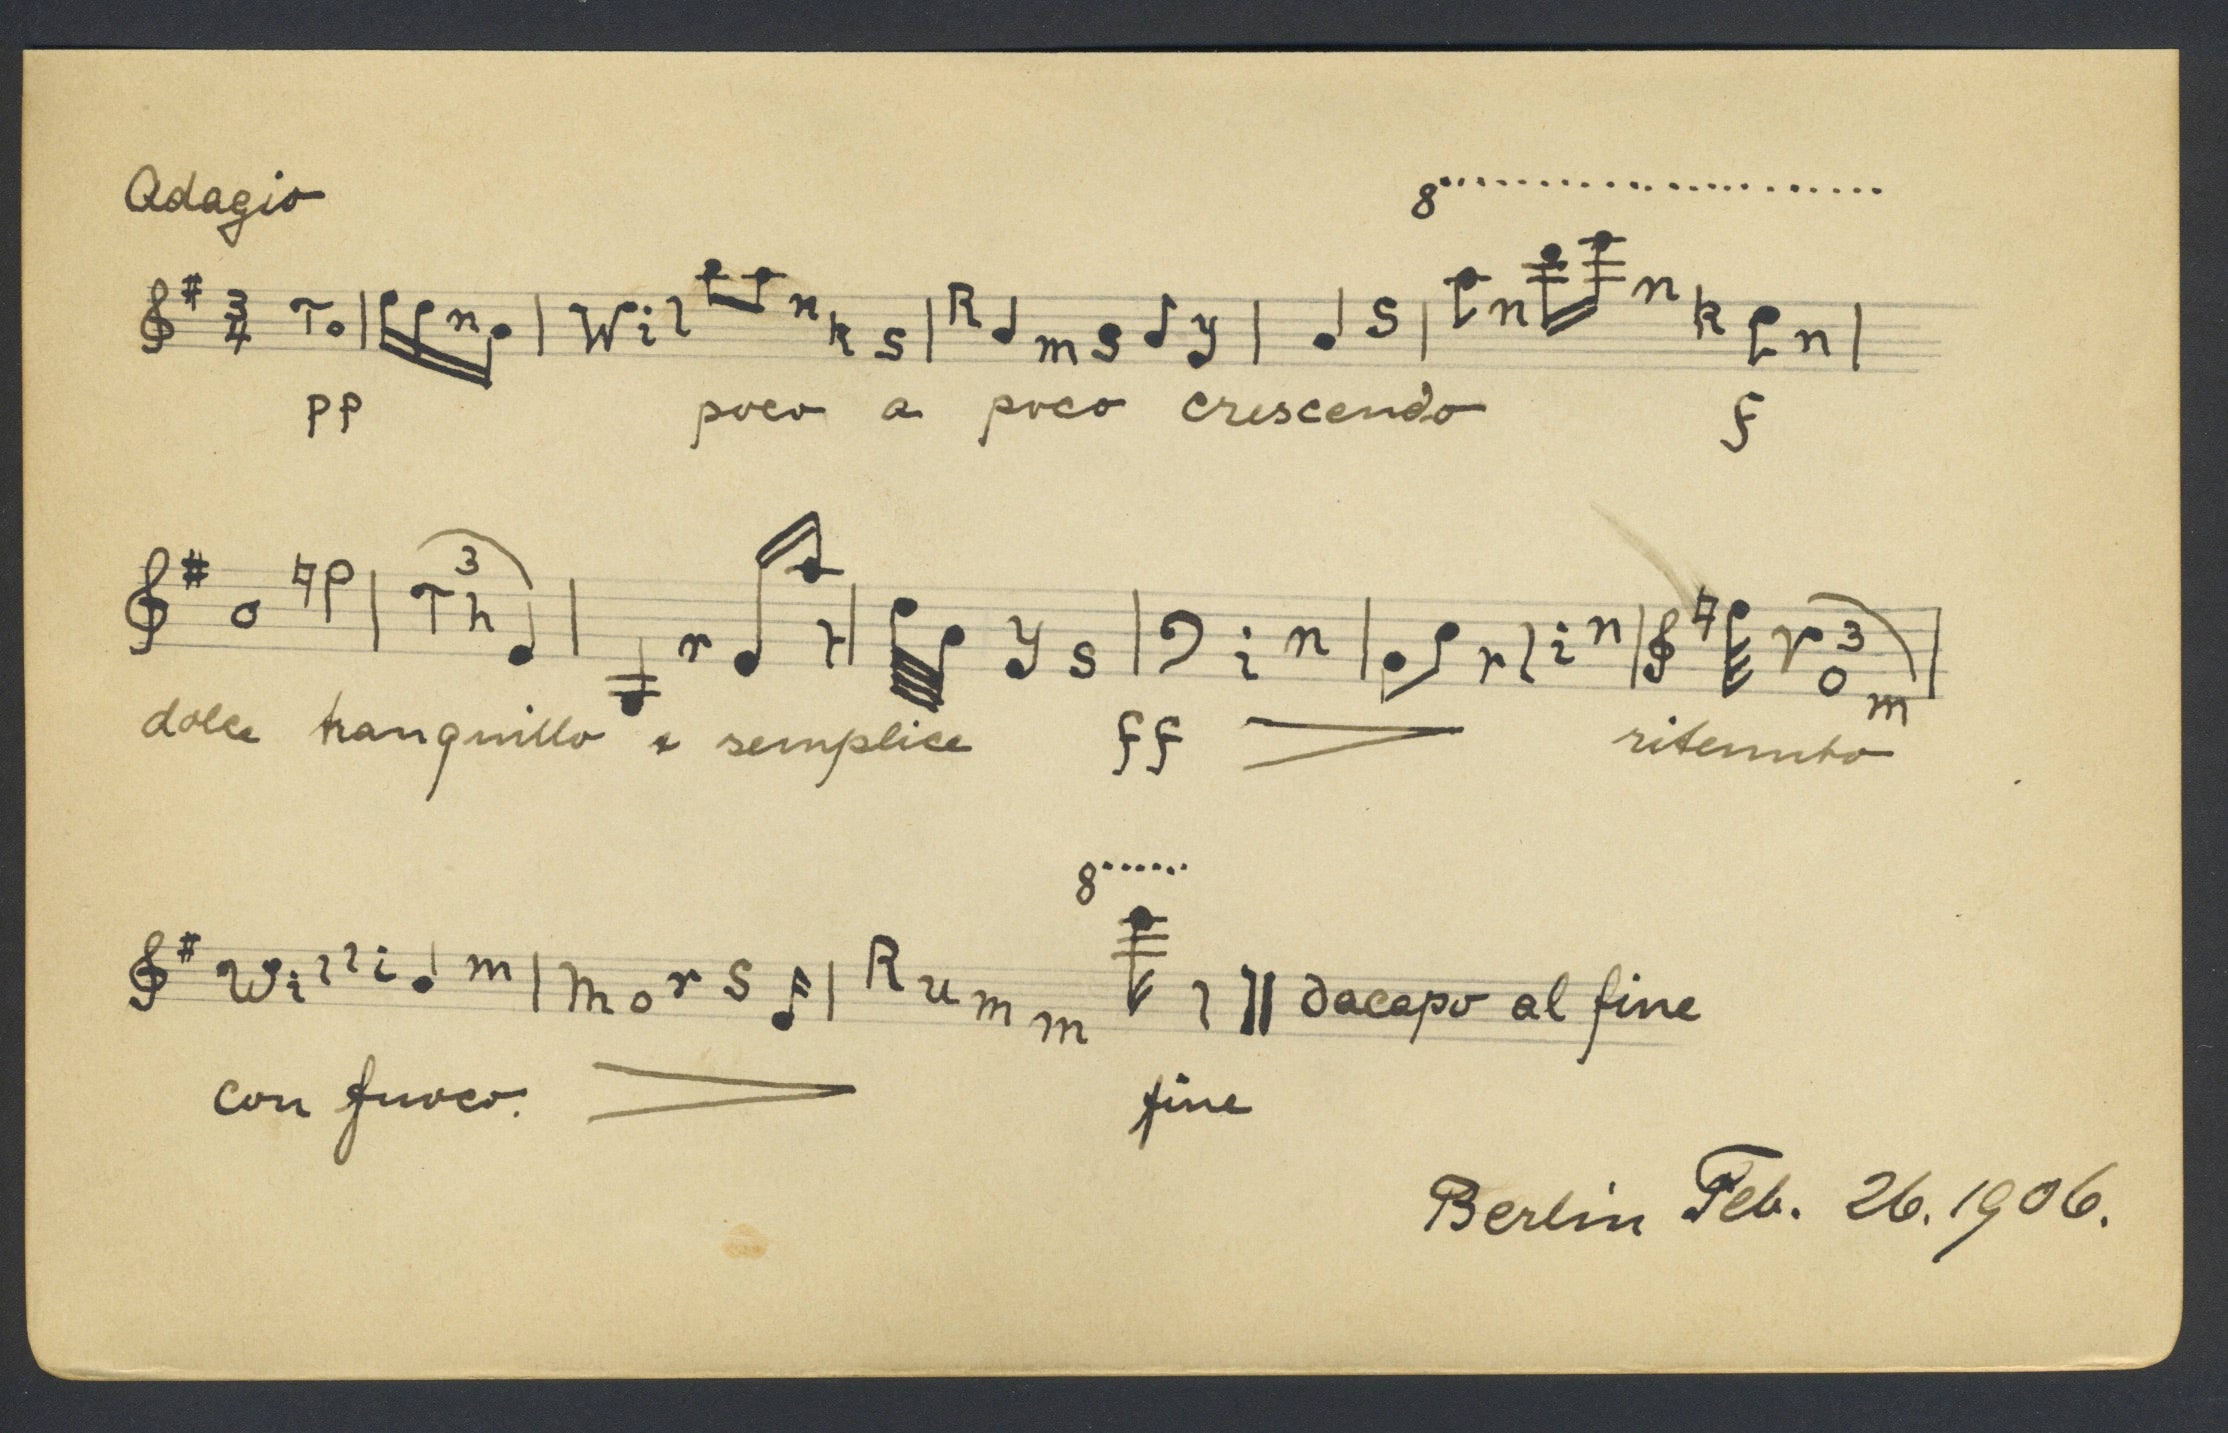 Adagio
8
3/4 To n Wil nks R ms y s n n k n
pp poco a poco crescendo f
p Th 3 r r ys in rlin r 3 o m
dolce tranquillo e semplice ff ritenuto
8
Willi m Mors Rumm l dacapo al fine
con fuoco. fine
Berlin Feb. 26. 1906.